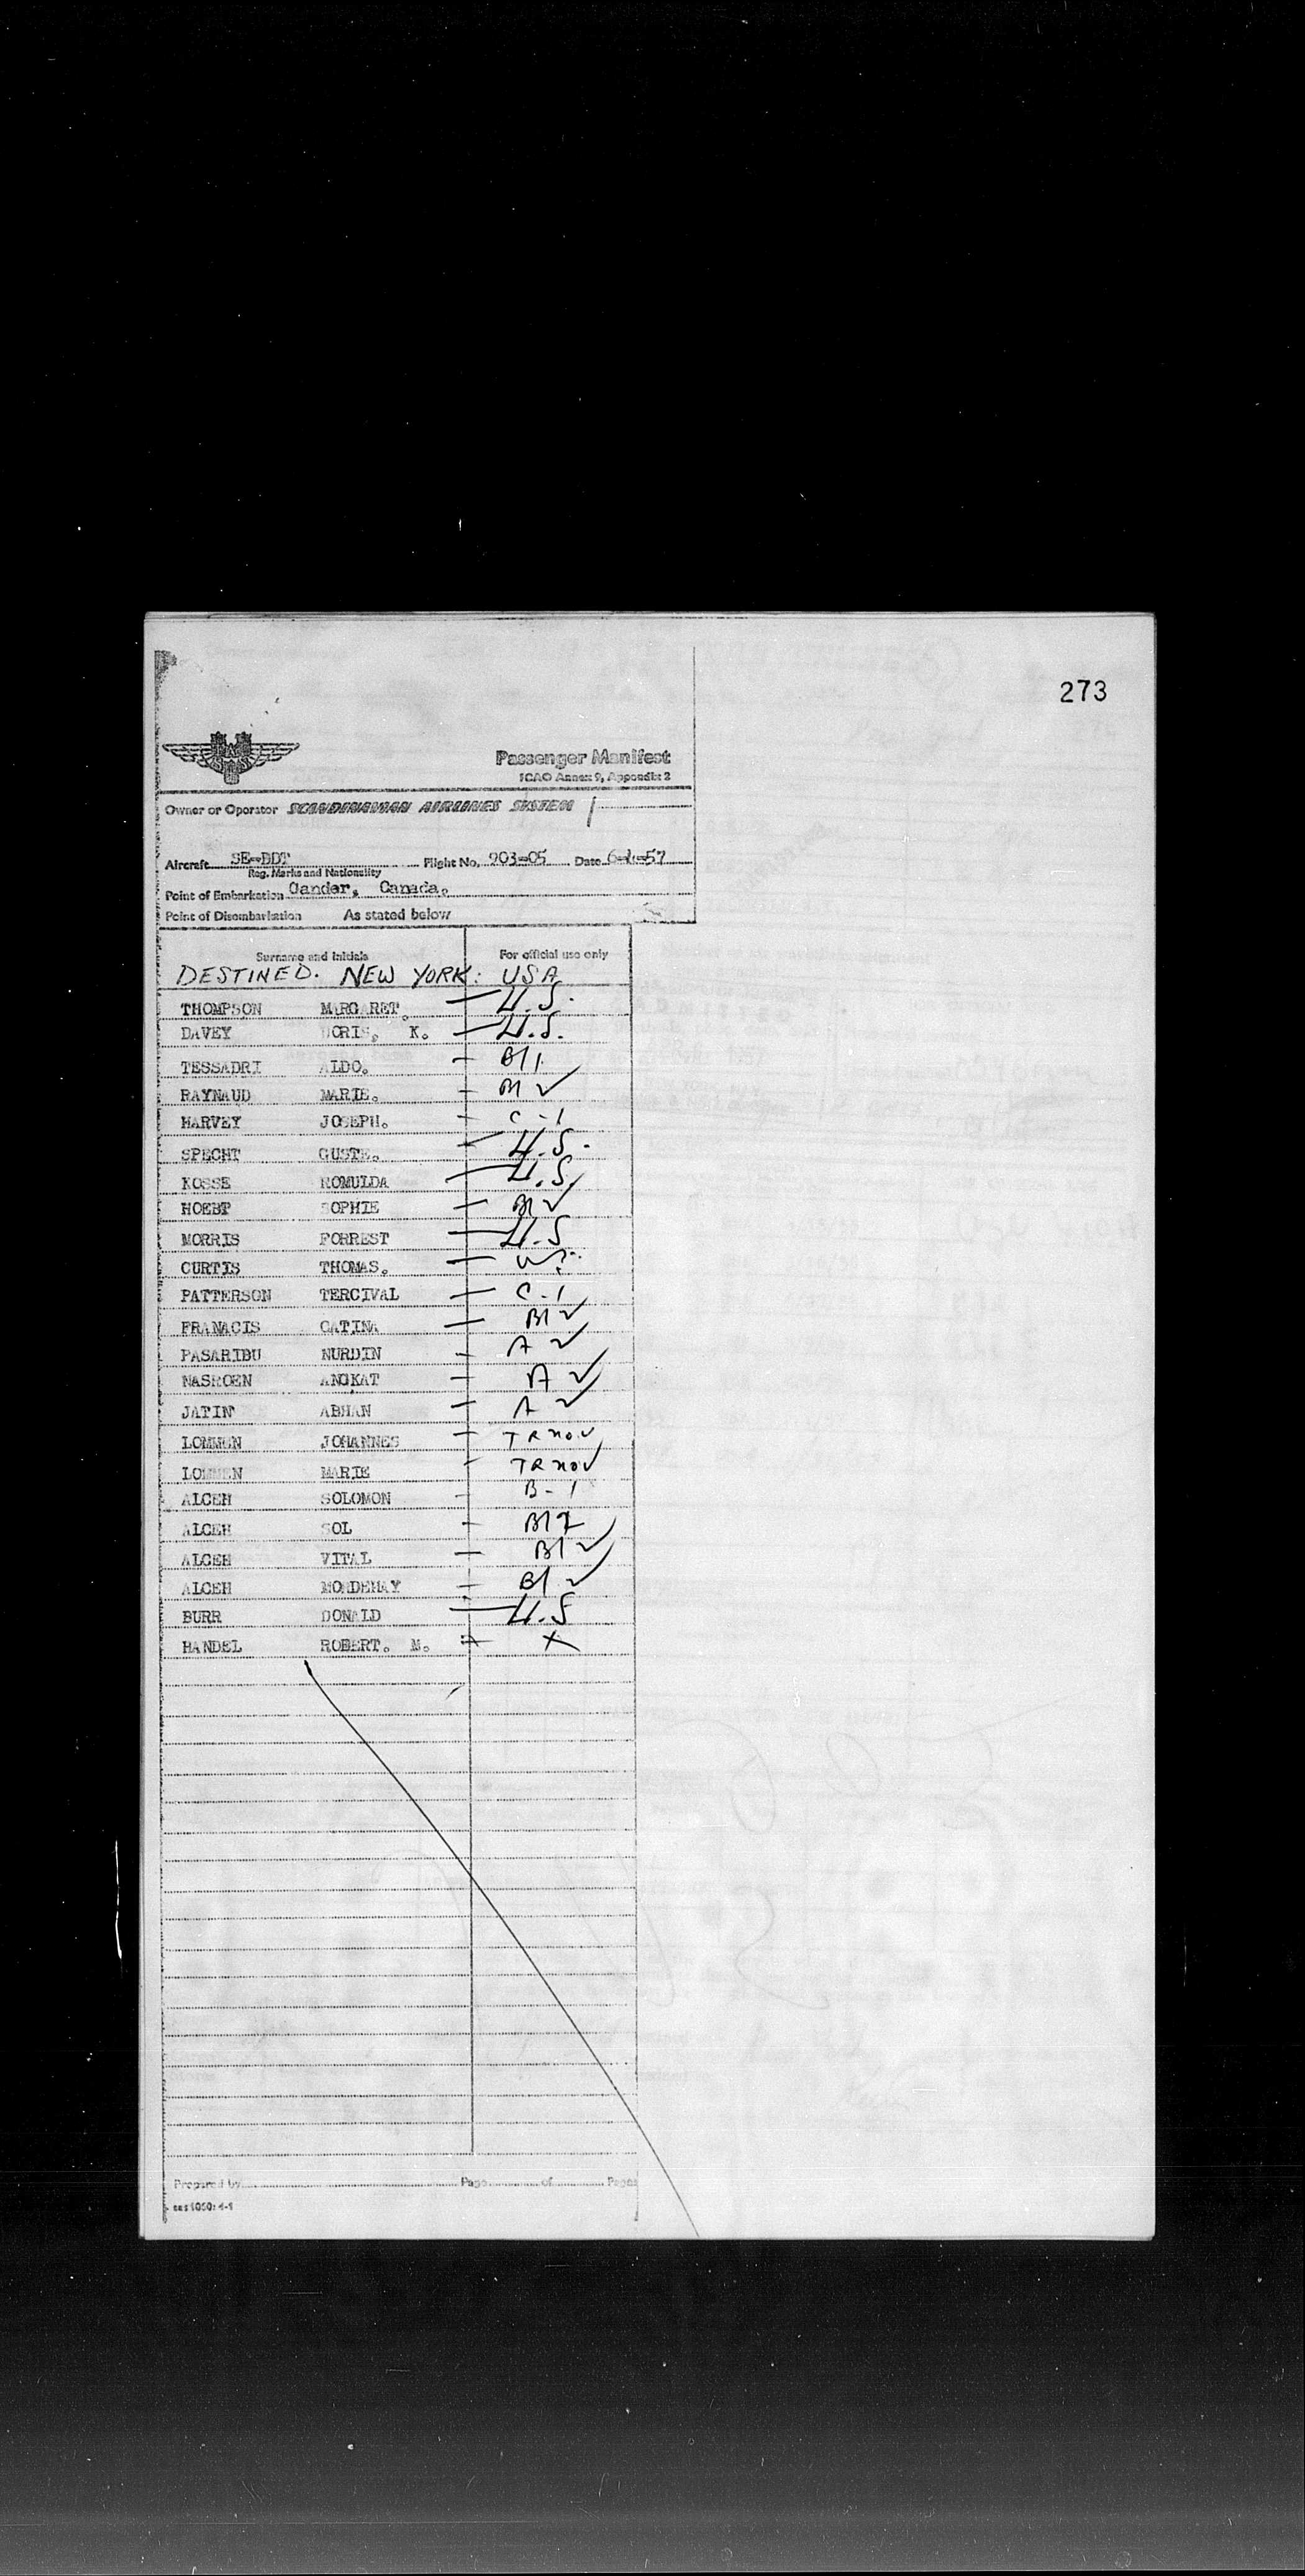 273
Passenger Manifest
ICAO Annex 9, Appendix 2
Owner or Operator SCANDINAVIAN AIRLINES SYSTEM
Aircraft SE-DDT Flight No. 903-05 Date 6-4-57
Reg. Marks and Nationality
Point of Embarkation Gander, Canada.
Point of Disembarkation As stated below
Surname and Initials For official use only
DESTINED. NEW YORK: USA
THOMPSON MARGARET. — U.S.
DAVEY DORIS, K. — U.S.
TESSADRI ALDO. — B/1
RAYNAUD MARIE. — B1 ✓
HARVEY JOSEPH. — C-1
SPECHT GUSTE. — U.S.
KOSSE ROMULDA — U.S.
HOEBT SOPHIE — B1 ✓
MORRIS FORREST — U.S
CURTIS THOMAS. —
PATTERSON TERCIVAL — C-1
FRANACIS CATINA — B1 ✓
PASARIBU NURDIN — A ✓
NASROEN ANGKAT — A ✓
JATIN ABHAN — A ✓
LOMMEN JOHANNES — TR nov
LOMMEN MARIE — TR nov
ALCEH SOLOMON — B-1
ALCEH SOL — B1
ALCEH VITAL — B1 ✓
ALCEH MORDEHAY — B1 ✓
BURR DONALD — U.S
HANDEL ROBERT. M. — X
Prepared by Page of Pages
sas 1050: 4-1